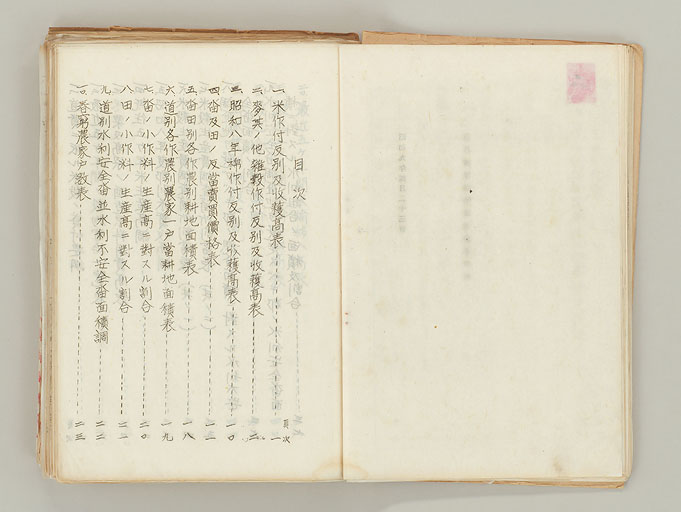 目次
一、米作付反別及收穫高表 一
二、麥其ノ他雜穀作付反別及收穫高表 二
三、昭和八年棉作付反別及收穫高表 一〇
四、畓及田ノ反當賣買價格表 一一
五、畓田別各作農別耕地面積表 一八
六、道別各作農別農家一戸當耕地面積表 一九
七、畓ノ小作料ノ生産高ニ對スル割合 二〇
八、田ノ小作料ノ生産高ニ對スル割合 二一
九、道別水利安全畓並水利不安全畓面積調 二二
一〇、春窮農家戸數表 二三
目次 一